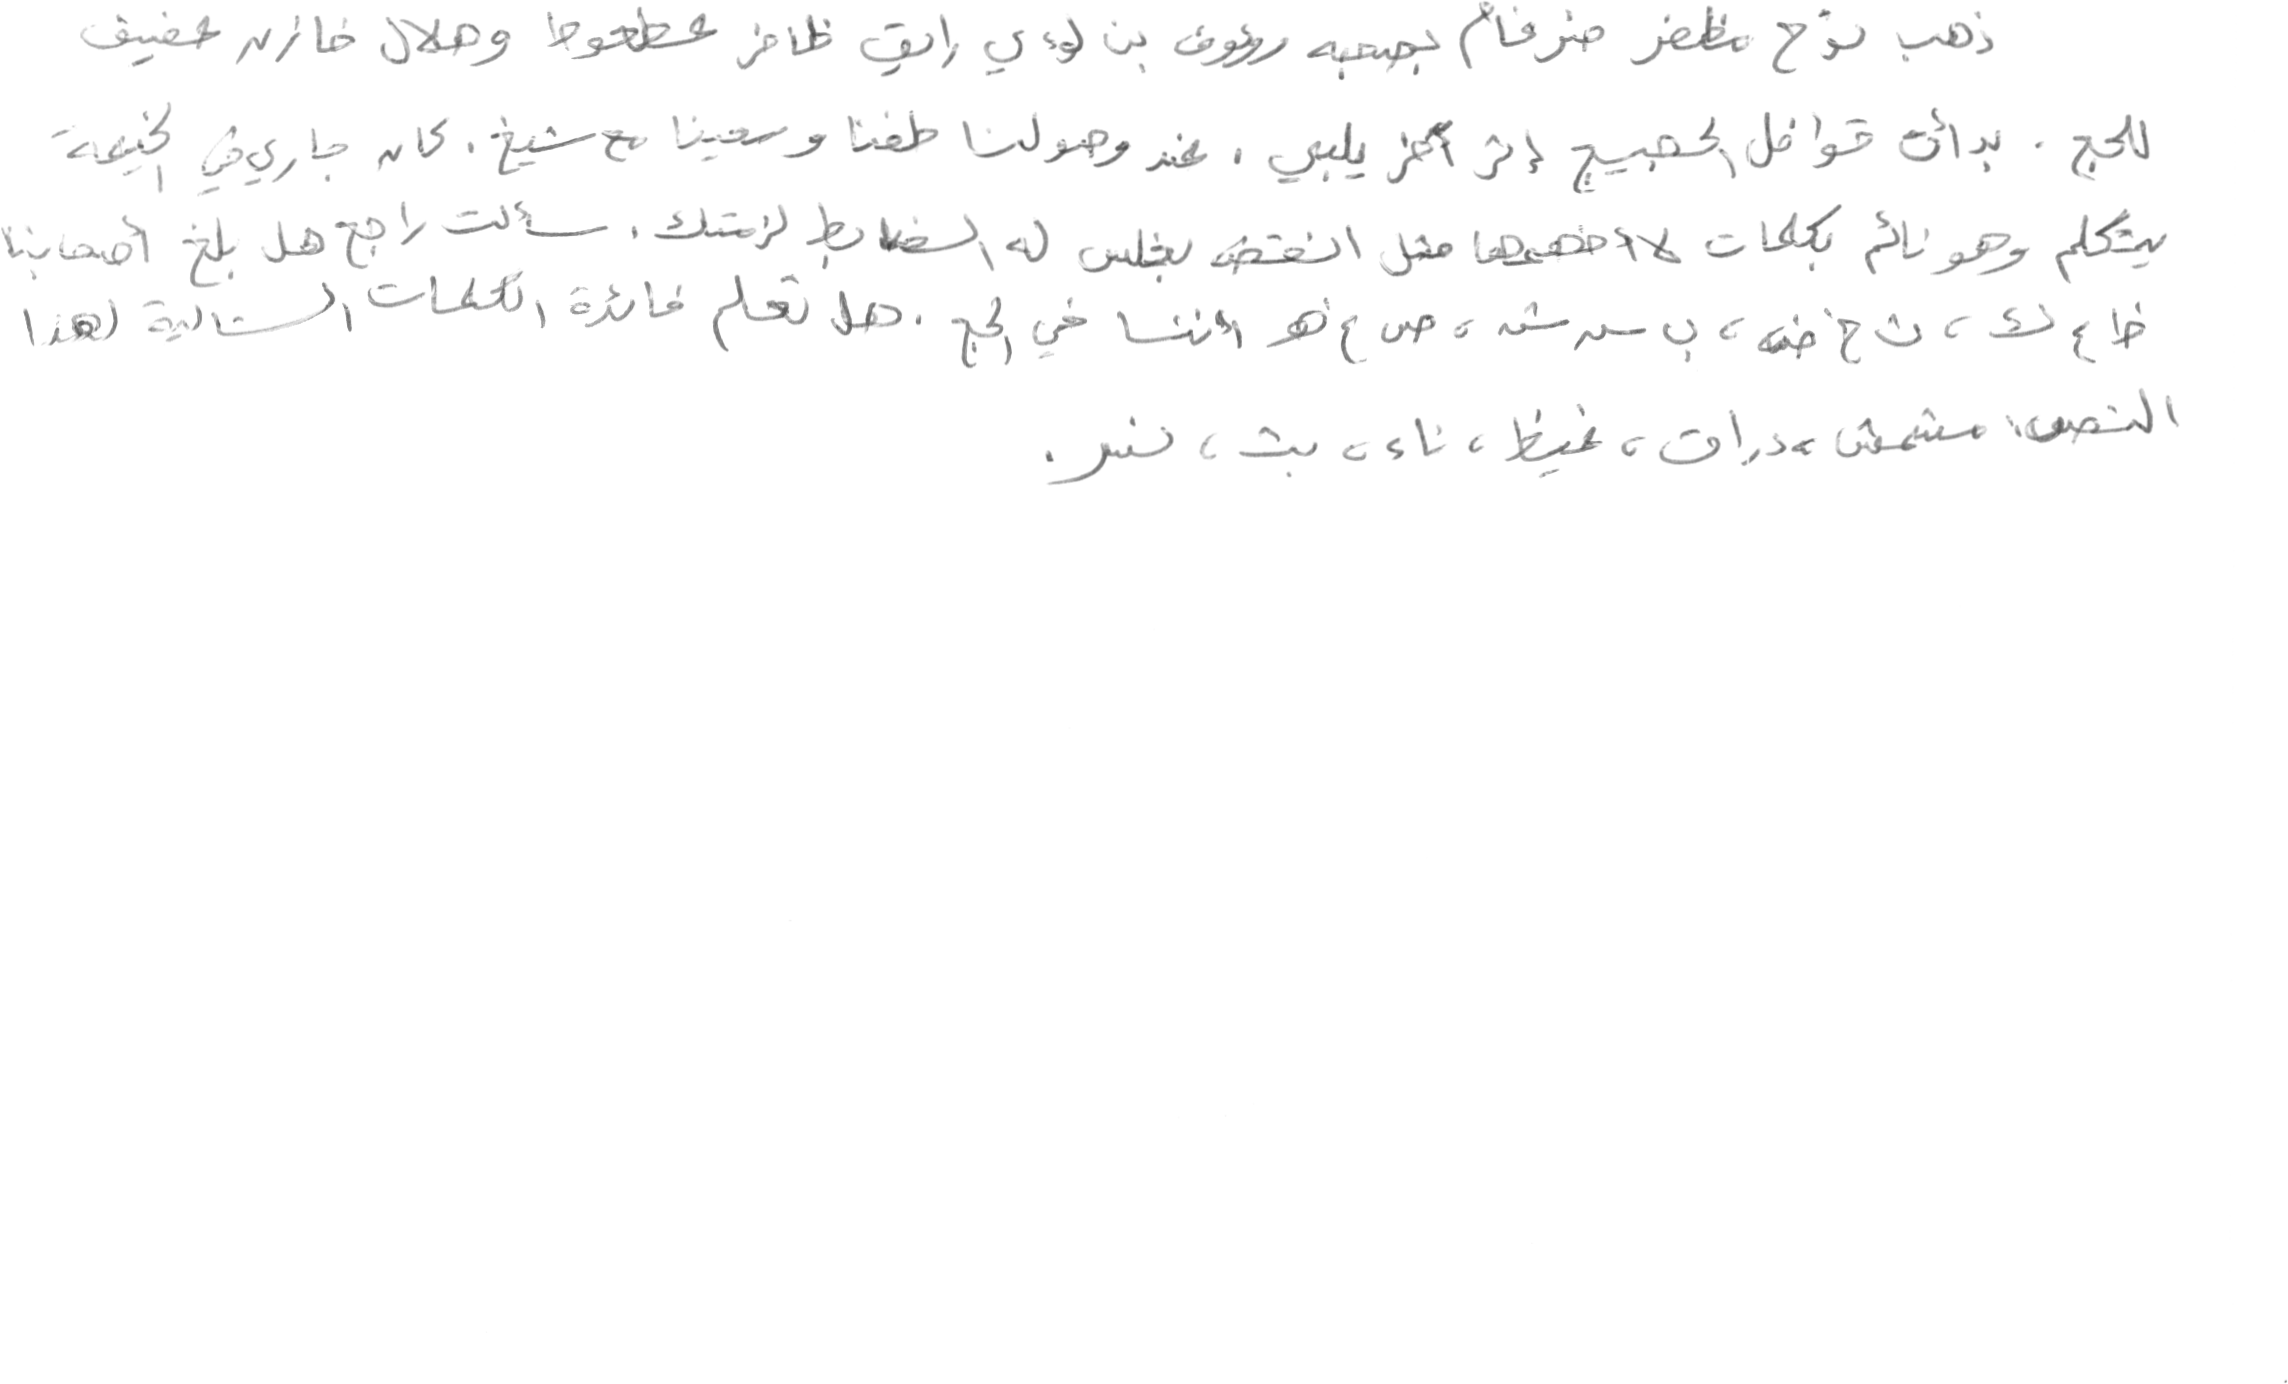 ذهب نوح مظفر ضرغام بصحبه رؤوف بن لؤي رايق ظافر عطعوط وهلال خازن عفيف
للحج . بدأت قوافل الحجيج إثر آخر يلبي . عند وصولنا طفنا وسعينا مع شيخ . كان جاري في الخيمة
يتكلم وهو نائم بكلمات لا أفهمها مثل انغض بغلس له الضابط لزمتك . سألت راجح هل بلغ أصحابنا
ظاع لك ، ث خ ضه ، ب س ش ، ص غ هو أننا في الحج . هل تعلم فائدة الكلمات التالية لهذا
النص: مشمش ، دراق ، غيظ ، ناء ، بث ، نسر .